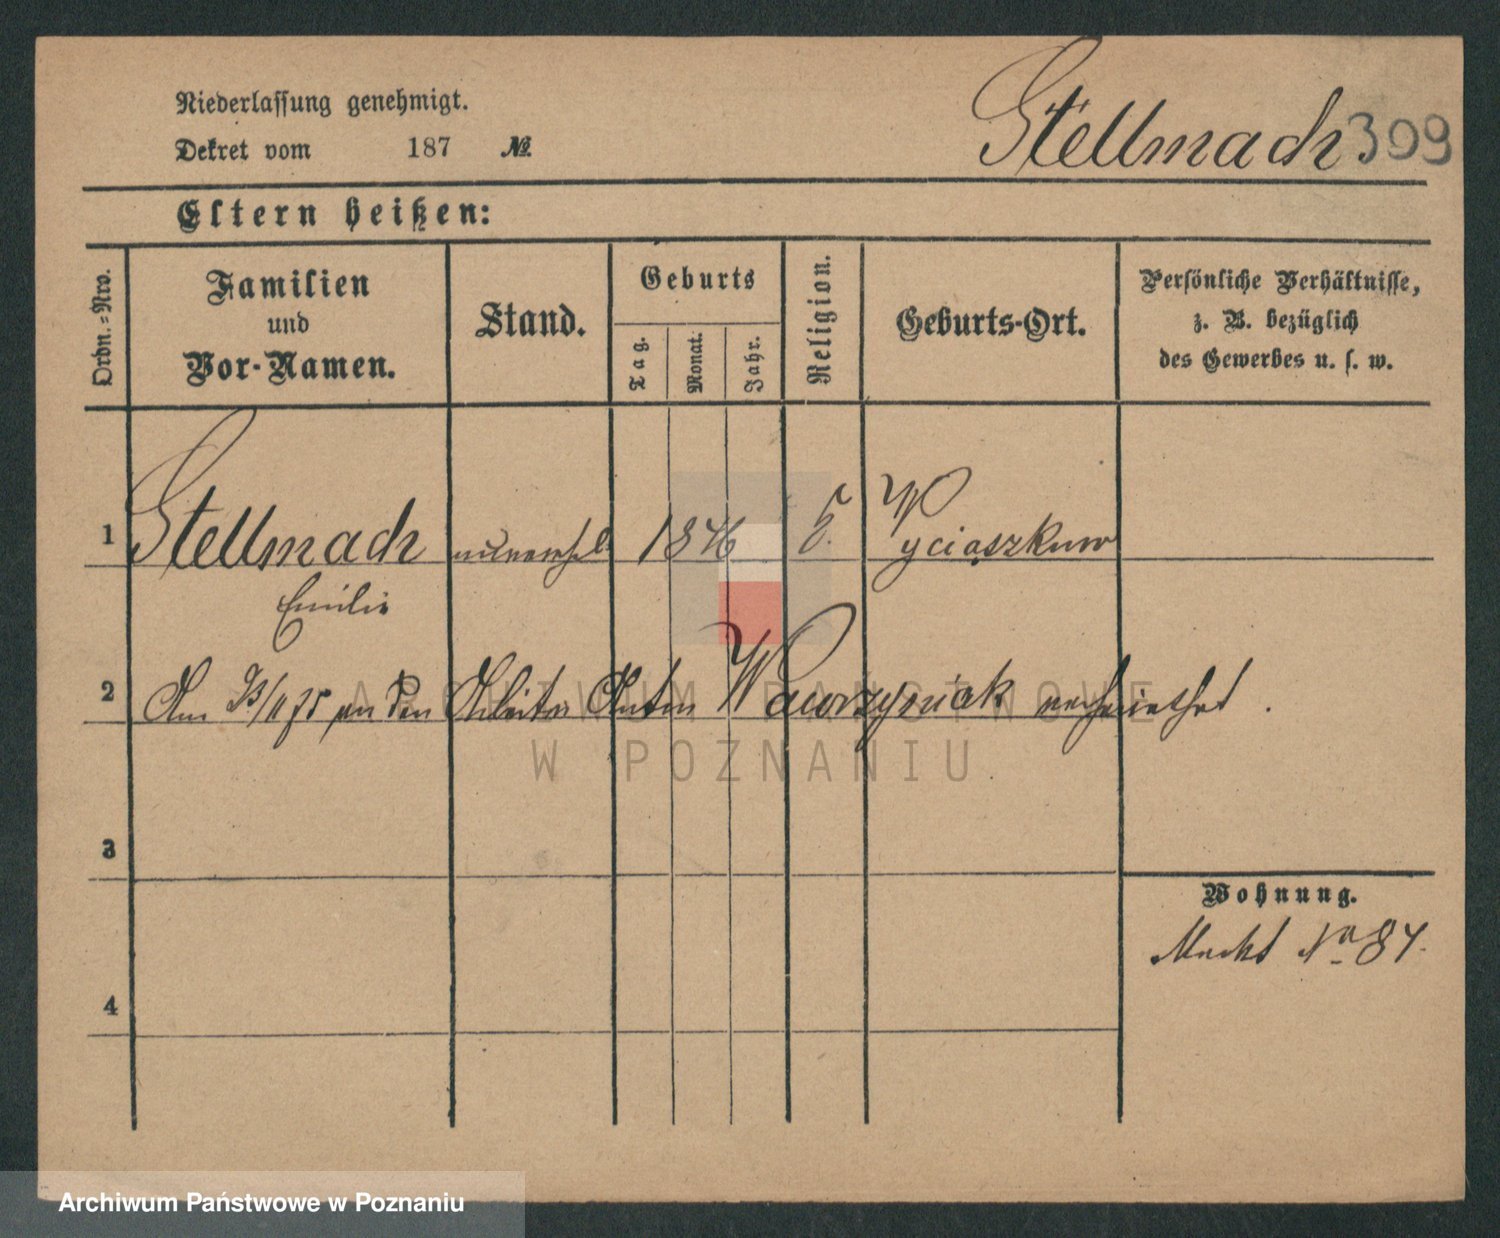 Niederlassung genehmigt.
Dekret vom 187 №
Stellmach 309
Eltern heißen:
Ordn.-Nro.
Familien und Vor-Namen.
Stand.
Geburts
Tag.
Monat.
Jahr.
Religion.
Geburts-Ort.
Persönliche Verhältnisse,
z. B. bezüglich
des Gewerbes u. s. w.
1 Stellmach unverehel 1846 Wyciaszkow
Emilie
2 Am /11 75 an den Arbeiter Anton Wawrzyniak verheirathet.
ARCHIWUM PAŃSTWOWE
W POZNANIU
3
Wohnung.
Markt No 84.
4
Archiwum Państwowe w Poznaniu